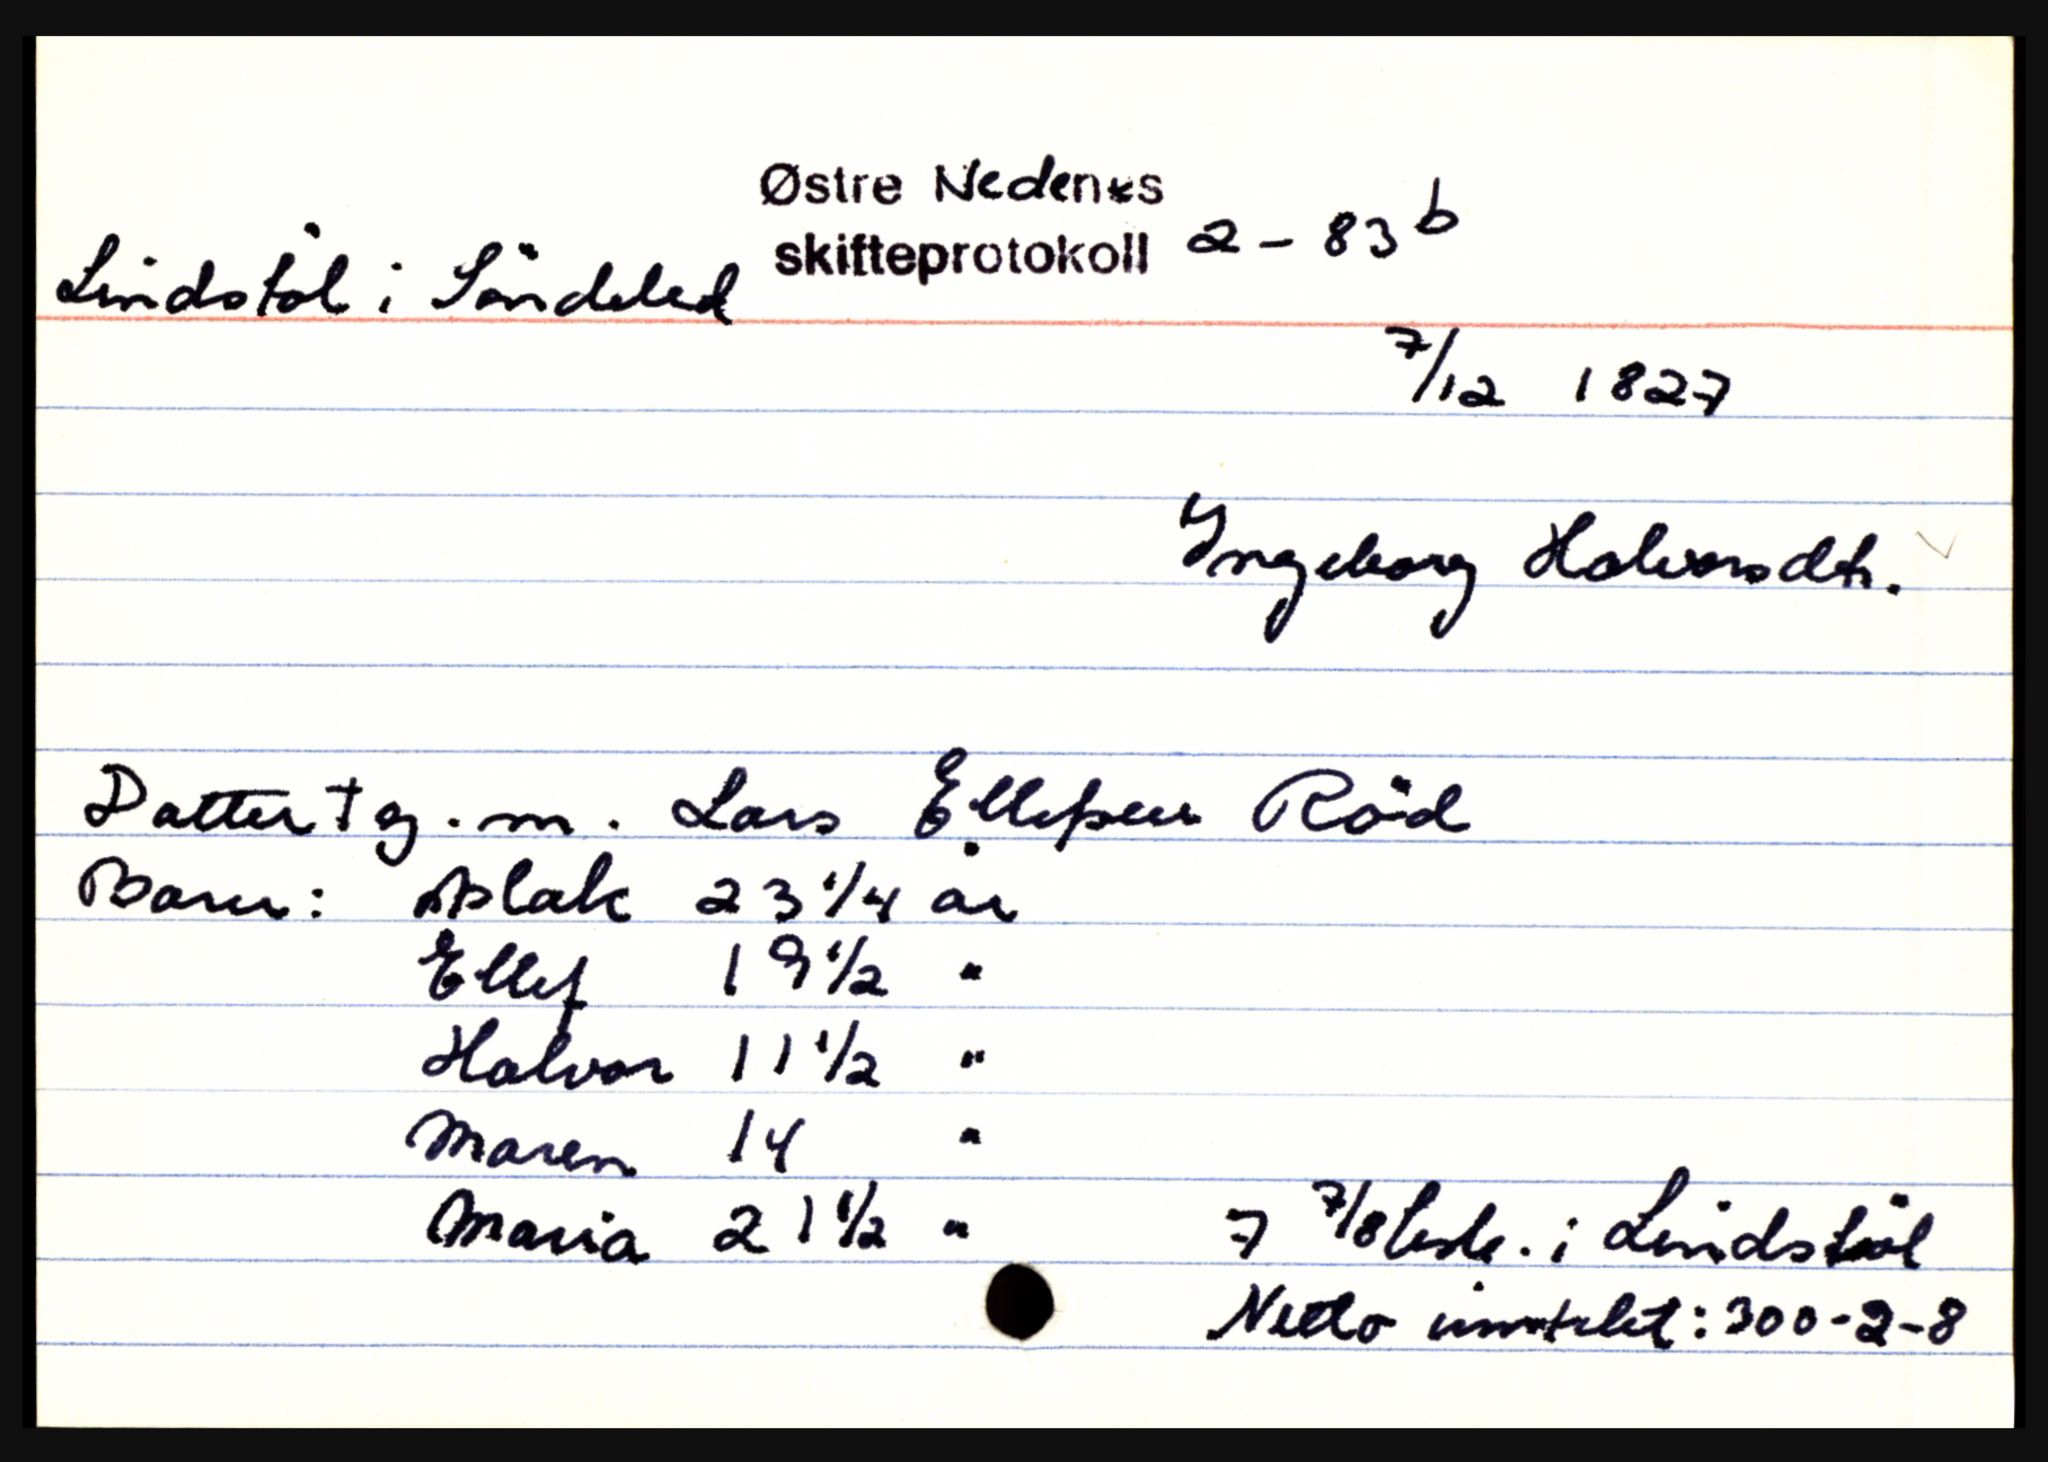 Østre Nedenes
skifteprotokoll 2-83 b
Lindstöl i Söndeled
7/12 1827
Ingeborg Halvorsdtr.
Datter † g. m. Lars Ellefsen Röd
Barn: Aslak 23 1/4 år
Ellef 19 1/2 "
Halvor 11 1/2 "
Maren 14 "
Maria 21 1/2 "
7 7/8 i Lindstöl
Netto inntekt: 300-2-8